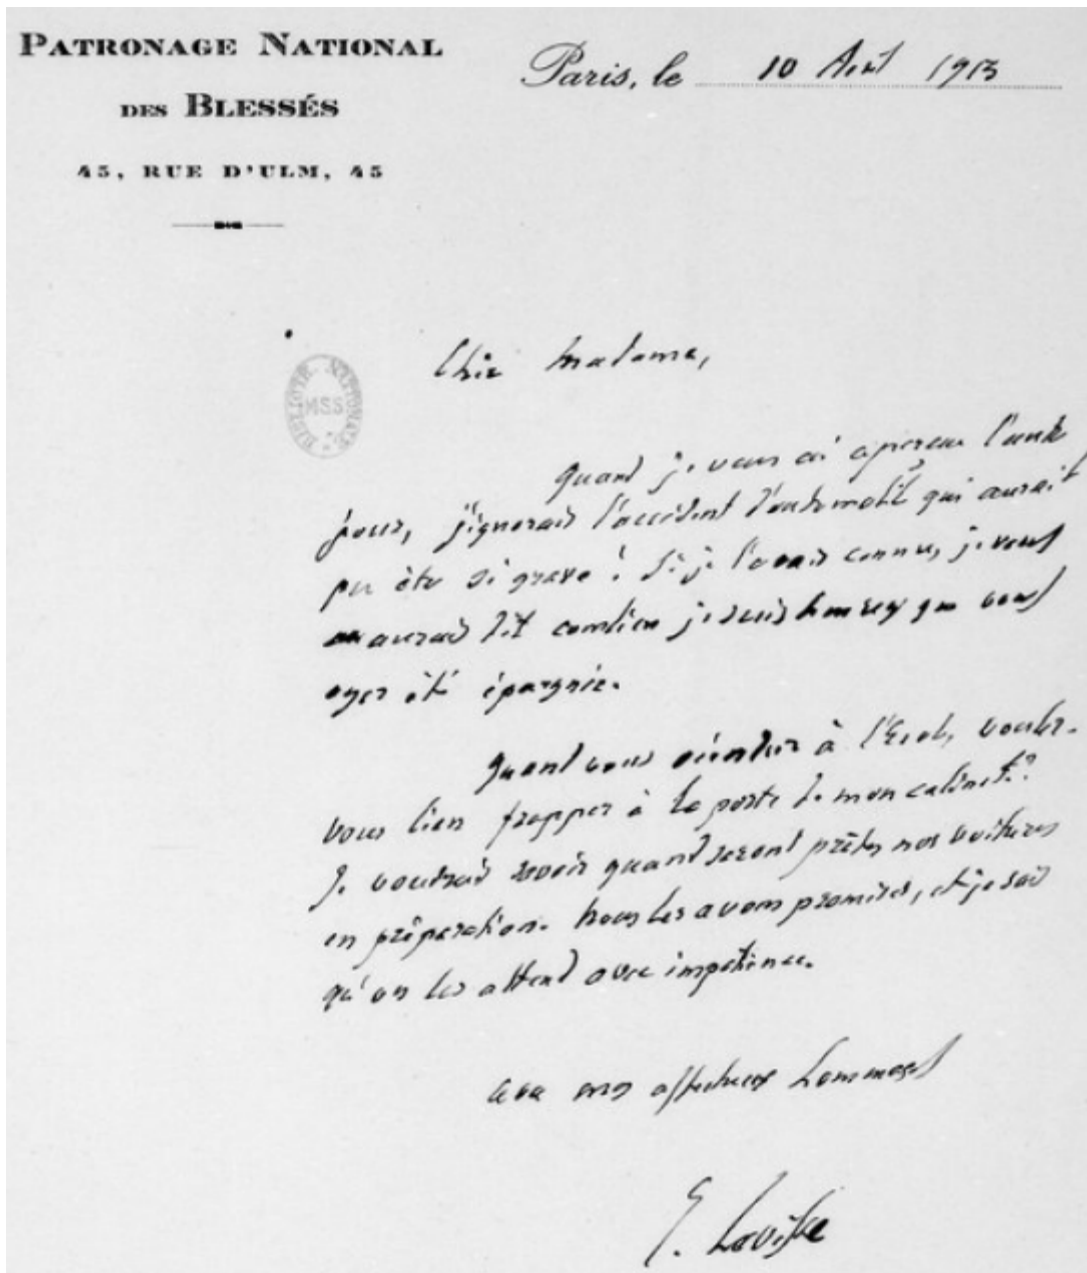 PATRONAGE NATIONAL
DES BLESSÉS
45, RUE D'ULM, 45
Paris, le 10 Août 1915
BIBLIOTH. NATIONALE
MSS
Chère Madame,
Quand je vous ai aperçue l'autre
jour, j'ignorais l'accident d'automobile qui aurait
pu être si grave ! Si je l'avais connu, je vous
aurais dit combien je suis heureux que vous
ayez été épargnée.
Quand vous viendrez à l'École, voulez-
vous bien frapper à la porte de mon cabinet ?
Je voudrais savoir quand seront prêtes nos voitures
en préparation. Nous les avons promises, et je sais
qu'on les attend avec impatience.
Avec mes affectueux hommages
E. Lavisse